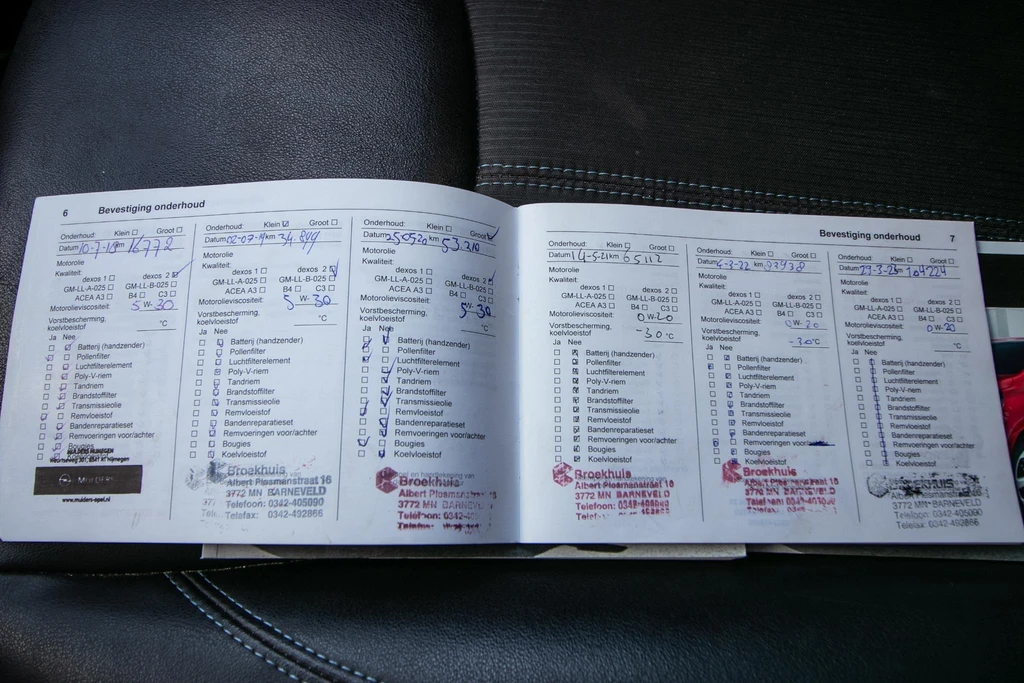 6 Bevestiging onderhoud
Onderhoud: Klein Groot
Datum 10-7-18 km 16772
Motorolie
Kwaliteit:
dexos 1 dexos 2
GM-LL-A-025 GM-LL-B-025
ACEA A3 B4 C3
Motorolieviscositeit: 5 W- 30
Vorstbescherming,
koelvloeistof °C
Ja Nee
Batterij (handzender)
Pollenfilter
Luchtfilterelement
Poly-V-riem
Tandriem
Brandstoffilter
Transmissieolie
Remvloeistof
Bandenreparatieset
Remvoeringen voor/achter
Bougies
MULDERS NIJMEGEN
www.mulders-opel.nl
Onderhoud: Klein Groot
Datum 02-07-19 km 34.844
Motorolie
Kwaliteit:
dexos 1 dexos 2
GM-LL-A-025 GM-LL-B-025
ACEA A3 B4 C3
Motorolieviscositeit: 5 W- 30
Vorstbescherming,
koelvloeistof °C
Ja Nee
Batterij (handzender)
Pollenfilter
Luchtfilterelement
Poly-V-riem
Tandriem
Brandstoffilter
Transmissieolie
Remvloeistof
Bandenreparatieset
Remvoeringen voor/achter
Bougies
Koelvloeistof
Broekhuis
Albert Plesmanstraat 16
3772 MN BARNEVELD
Telefoon: 0342-405090
Telefax: 0342-492866
Onderhoud: Klein Groot
Datum 250520 km 53.210
Motorolie
Kwaliteit:
dexos 1 dexos 2
GM-LL-A-025 GM-LL-B-025
ACEA A3 B4 C3
Motorolieviscositeit: 5W-30
Vorstbescherming,
koelvloeistof °C
Ja Nee
Batterij (handzender)
Pollenfilter
Luchtfilterelement
Poly-V-riem
Tandriem
Brandstoffilter
Transmissieolie
Remvloeistof
Bandenreparatieset
Remvoeringen voor/achter
Bougies
Koelvloeistof
Broekhuis
Albert Plesmanstraat
3772 MN BARNEVELD
Telefoon: 0342-40
Bevestiging onderhoud 7
Onderhoud: Klein Groot
Datum 14-5-21 km 65112
Motorolie
Kwaliteit:
dexos 1 dexos 2
GM-LL-A-025 GM-LL-B-025
ACEA A3 B4 C3
Motorolieviscositeit: 0W-20
Vorstbescherming,
koelvloeistof -30 °C
Ja Nee
Batterij (handzender)
Pollenfilter
Luchtfilterelement
Poly-V-riem
Tandriem
Brandstoffilter
Transmissieolie
Remvloeistof
Bandenreparatieset
Remvoeringen voor/achter
Bougies
Koelvloeistof
Broekhuis
Albert Plesmanstraat 16
3772 MN BARNEVELD
Telefoon: 0342-405090
Onderhoud: Klein Groot
Datum km
Motorolie
Kwaliteit:
dexos 1 dexos 2
GM-LL-A-025 GM-LL-B-025
ACEA A3 B4 C3
Motorolieviscositeit: 0W-20
Vorstbescherming,
koelvloeistof -30°C
Ja Nee
Batterij (handzender)
Pollenfilter
Luchtfilterelement
Poly-V-riem
Tandriem
Brandstoffilter
Transmissieolie
Remvloeistof
Bandenreparatieset
Remvoeringen voor
Bougies
Koelvloeistof
Broekhuis
3772 MN BARNEVELD
Onderhoud: Klein Groot
Datum 104224
Motorolie
Kwaliteit:
dexos 1 dexos 2
GM-LL-A-025 GM-LL-B-025
ACEA A3 B4 C3
Motorolieviscositeit: 0W-20
Vorstbescherming,
koelvloeistof °C
Ja Nee
Batterij (handzender)
Pollenfilter
Luchtfilterelement
Poly-V-riem
Tandriem
Brandstoffilter
Transmissieolie
Remvloeistof
Bandenreparatieset
Remvoeringen voor/achter
Bougies
Koelvloeistof
Broekhuis
Albert Plesmanstraat 16
3772 MN BARNEVELD
Telefoon: 0342-405090
Telefax: 0342-492866